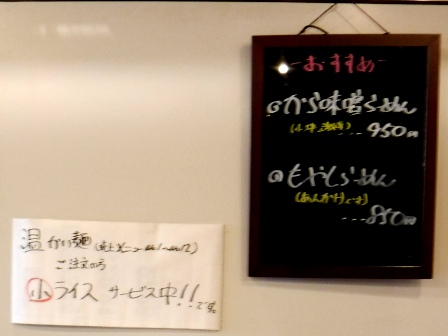 おすすめ
から味噌らーめん
950円
もやしらーめん
(あんかけです)
850円
温かい麺
ご注文の方
小ライス サービス中!!です。